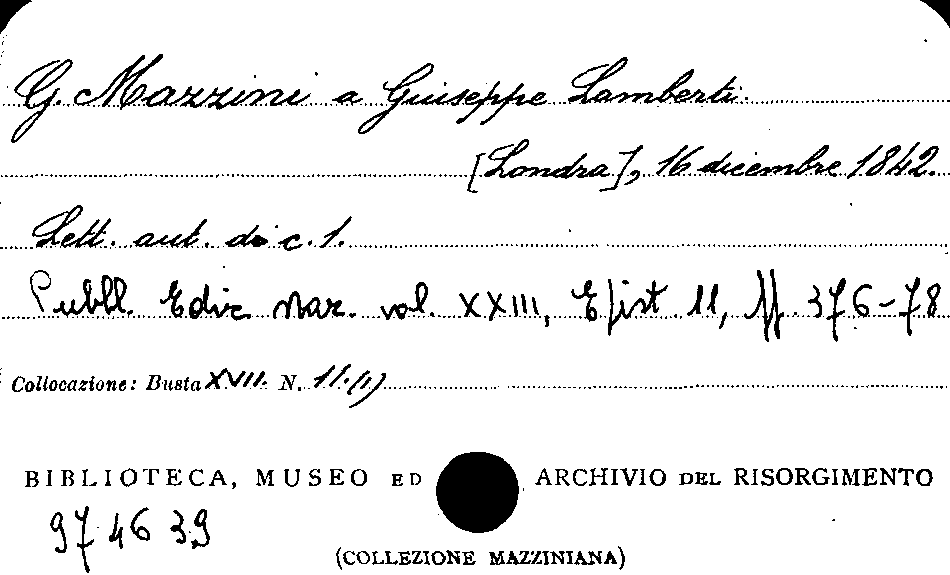 G. Mazzini a Giuseppe Lamberti.
[Londra], 16 dicembre 1842.
Lett. aut. di c. 1.
Pubbl. Ediz. Naz. vol. XXIII, Epist. 11, pp. 376-78
Collocazione: Busta XVII. N. 11.(1)
BIBLIOTECA, MUSEO ED ARCHIVIO DEL RISORGIMENTO
97 46 39
(COLLEZIONE MAZZINIANA)